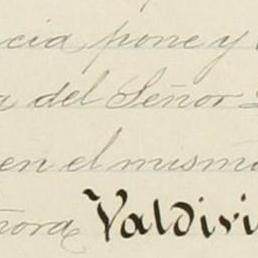 cia pone y
a del Señor
en el mismo
ñora Valdivi